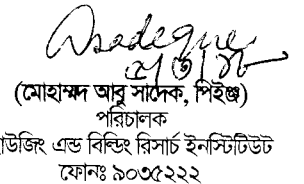 Asadeque
(মোহাম্মদ আবু সাদেক, পিইঞ্জ)
পরিচালক
াউজিং এন্ড বিল্ডিং রিসার্চ ইনস্টিটিউট
ফোনঃ ৯০৩৫২২২